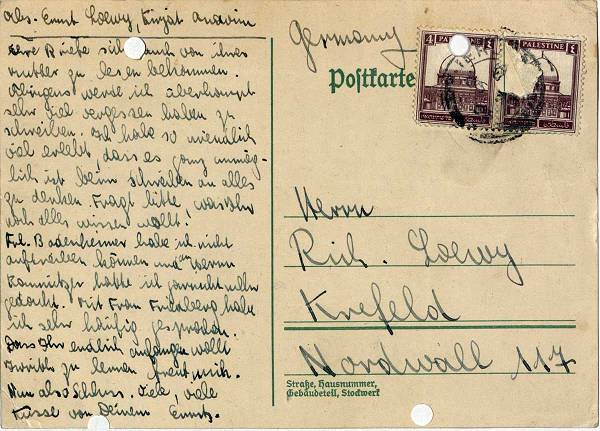 Abs. Ernst Loewy, Kirjat Anavim
Eure Briefe sich auch von ihres
Mutter zu lesen bekommen.
Übrigens werde ich überhaupt
sehr viel vergessen haben zu
schreiben. Ich habe so unendlich
viel erlebt, dass es ganz unmög-
lich ist beim Schreiben an alles
zu denken. Fragt bitte, was Ihr
noch alles wissen wollt.
Frl. Badenheimer habe ich nicht
auftreiben können und an Herrn
Kaunitzer hatte ich garnicht mehr
gedacht. Mit Frau Friedberg habe
ich sehr häufig gesprochen.
Dass Ihr endlich anfangen wollt
Iwrith zu lernen freut mich.
Nun also Schluss. Viele, viele
Küsse von Deinem Ernst.
Germany
Postkarte
4 PALESTINE
PALESTINE
Herrn
Rich. Loewy
Krefeld
Nordwall 117
Straße, Hausnummer,
Gebäudeteil, Stockwerk